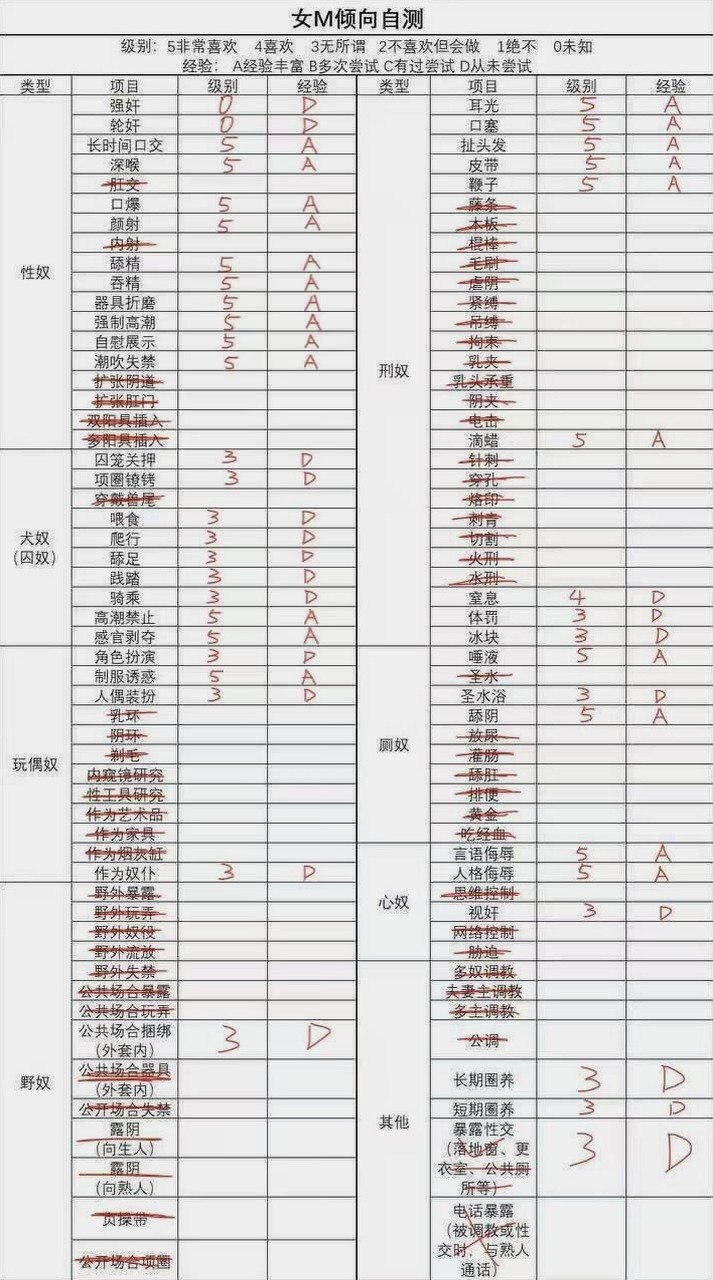 女M倾向自测
级别: 5非常喜欢 4喜欢 3无所谓 2不喜欢但会做 1绝不 0未知
经验: A经验丰富 B多次尝试 C有过尝试 D从未尝试
类型 项目 级别 经验 类型 项目 级别 经验
性奴
强奸 0 D
轮奸 0 D
长时间口交 5 A
深喉 5 A
肛交
口爆 5 A
颜射 5 A
内射
舔精 5 A
吞精 5 A
器具折磨 5 A
强制高潮 5 A
自慰展示 5 A
潮吹失禁 5 A
扩张阴道
扩张肛门
双阳具插入
多阳具插入
犬奴
(囚奴)
囚笼关押 3 D
项圈镣铐 3 D
穿戴兽尾
喂食 3 D
爬行 3 D
舔足 3 D
践踏 3 D
骑乘 3 D
高潮禁止 5 A
感官剥夺 5 A
玩偶奴
角色扮演 3 D
制服诱惑 5 A
人偶装扮 3 D
乳环
阴环
剃毛
内窥镜研究
性工具研究
作为艺术品
作为家具
作为烟灰缸
作为奴仆 3 D
野奴
野外暴露
野外玩弄
野外奴役
野外流放
野外失禁
公共场合暴露
公共场合玩弄
公共场合捆绑
(外套内) 3 D
公共场合器具
(外套内)
公开场合失禁
露阴
(向生人)
露阴
(向熟人)
贞操带
公开场合项圈
刑奴
耳光 5 A
口塞 5 A
扯头发 5 A
皮带 5 A
鞭子 5 A
藤条
木板
棍棒
毛刷
虐阴
紧缚
吊缚
拘束
乳夹
乳头承重
阴夹
电击
滴蜡 5 A
针刺
穿孔
烙印
刺青
切割
火刑
水刑
窒息 4 D
体罚 3 D
冰块 3 D
厕奴
唾液 5 A
圣水
圣水浴 3 D
舔阴 5 A
放尿
灌肠
舔肛
排便
黄金
吃经血
心奴
言语侮辱 5 A
人格侮辱 5 A
思维控制
视奸 3 D
网络控制
胁迫
其他
多奴调教
夫妻主调教
多主调教
公调
长期圈养 3 D
短期圈养 3 D
暴露性交
(落地窗、更
衣室、公共厕
所等) 3 D
电话暴露
(被调教或性
交时，与熟人
通话)